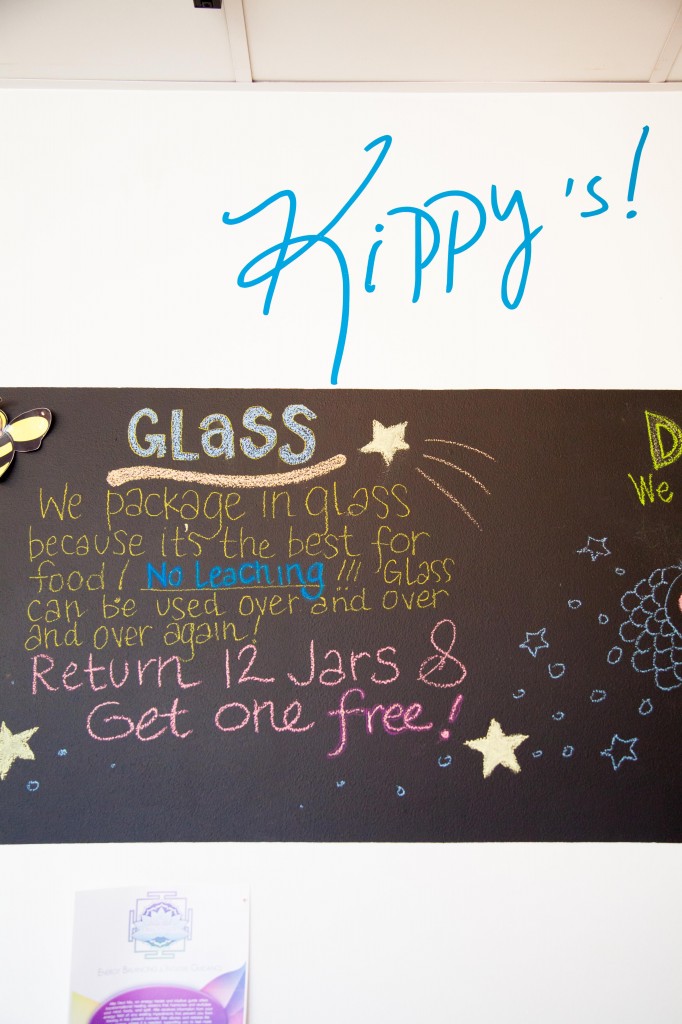 Kippy's!
GLaSS
We package in glass
because it's the best for
food! No Leaching!!! Glass
can be used over and over
and over again!
Return 12 Jars &
Get one free!
D
We